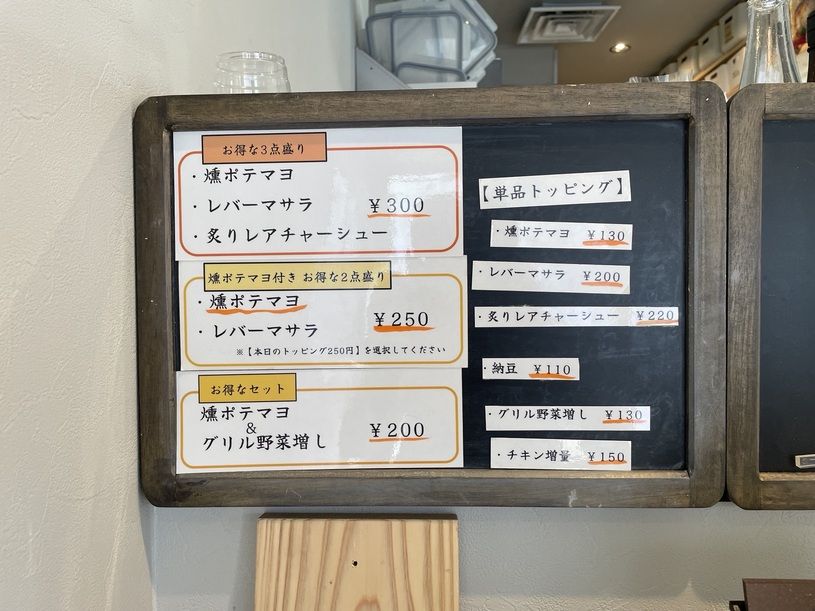 お得な3点盛り
・燻ポテマヨ
・レバーマサラ ¥300
・炙りレアチャーシュー
燻ポテマヨ付き お得な2点盛り
・燻ポテマヨ
・レバーマサラ ¥250
※【本日のトッピング250円】を選択してください
お得なセット
燻ポテマヨ
&
グリル野菜増し ¥200
【単品トッピング】
・燻ポテマヨ ¥130
・レバーマサラ ¥200
・炙りレアチャーシュー ¥220
・納豆 ¥110
・グリル野菜増し ¥130
・チキン増量 ¥150